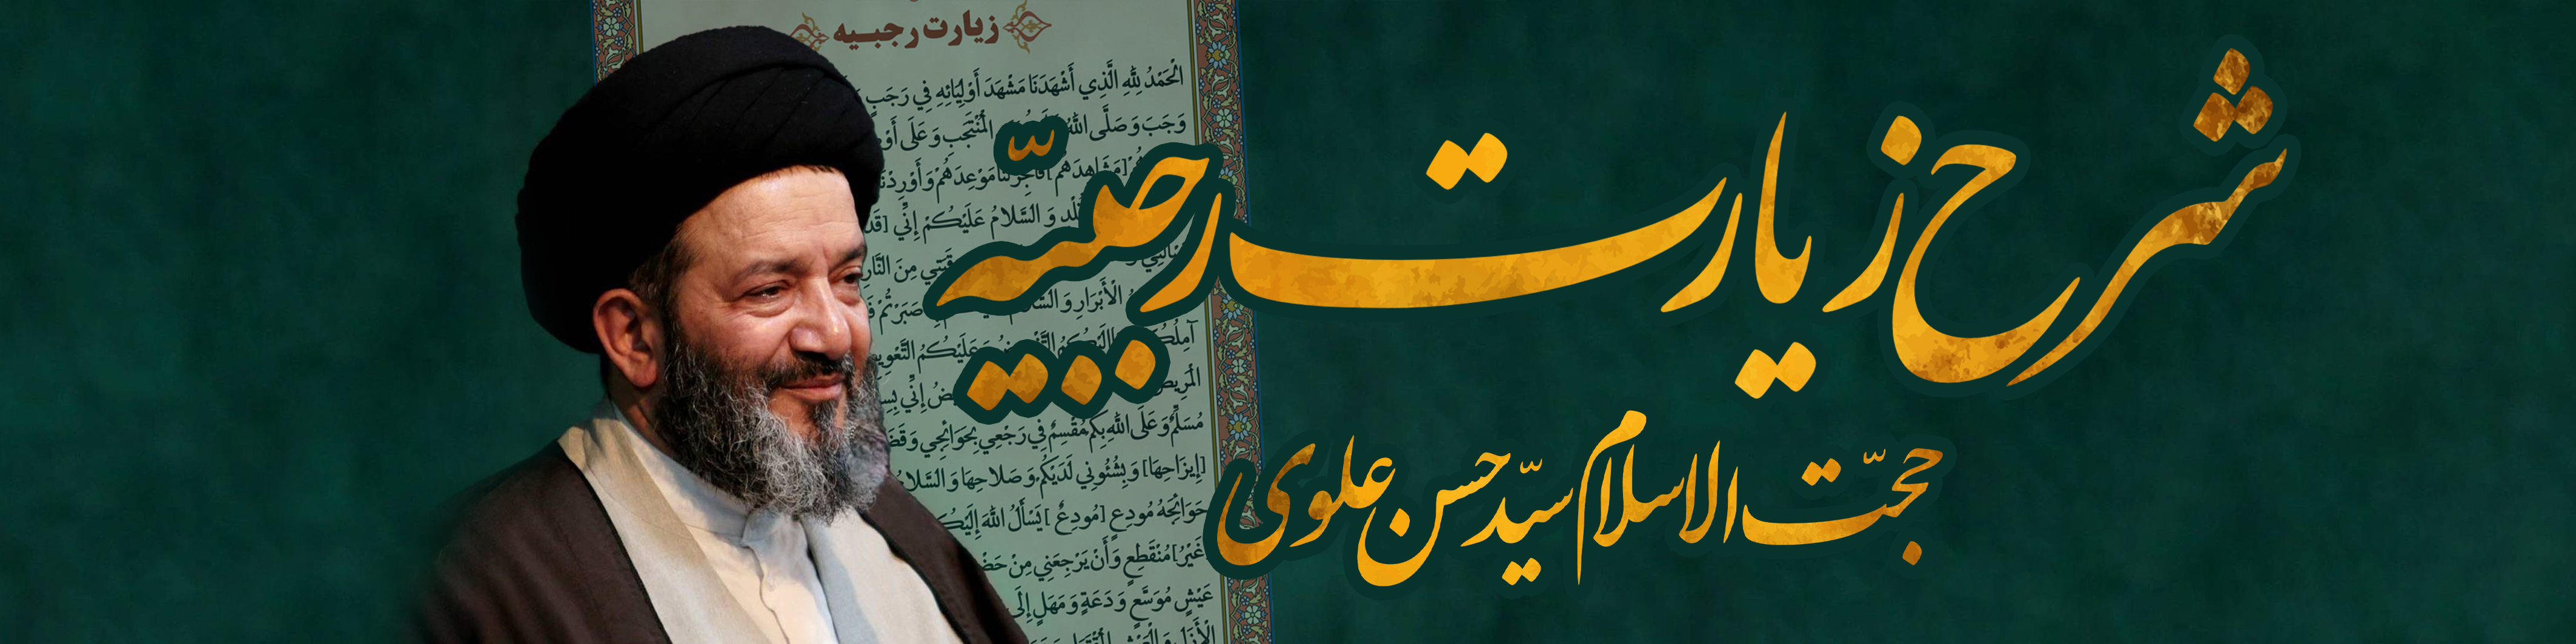 زیارت رجبیه
اَلْحَمْدُ لِلَّهِ الَّذِي أَشْهَدَنَا مَشْهَدَ أَوْلِيَائِهِ فِي رَجَبٍ
وَجَبَ وَ صَلَّى اللَّهُ الْمُنْتَجَبِ وَ عَلَى
[مَشَاهِدَهُمْ] فَأَنْجِزْ لَنَا مَوْعِدَهُمْ وَ أَوْرِدْنَا
وَ السَّلامُ عَلَيْكُمْ إِنِّي
مِنَ النَّارِ
الْأَبْرَارِ وَ صَبَرْتُمْ
آمِلُكُمْ وَ عَلَيْكُمُ التَّعْوِيضُ
إِنِّي
مُسَلِّمٌ وَ عَلَى اللَّهِ بِكُمْ مُقْسِمٌ فِي رَجْعِي بِحَوَائِجِي وَ
[إِيزَاحِهَا] وَ بِشُئُونِي لَدَيْكُمْ وَ صَلاحِهَا وَ السَّلامُ
حَوَائِجَهُ مُودِعٍ [مُودِعٌ] يَسْأَلُ اللَّهَ
[غَيْرُ] مُنْقَطِعٍ وَ أَنْ يَرْجِعَنِي مِنْ
عَيْشٍ مُوَسَّعٍ وَ دَعَةٍ وَ مَهَلٍ إِلَى
شرح زیارت رجبیّه
حجّت الاسلام سیّد حسن علوی